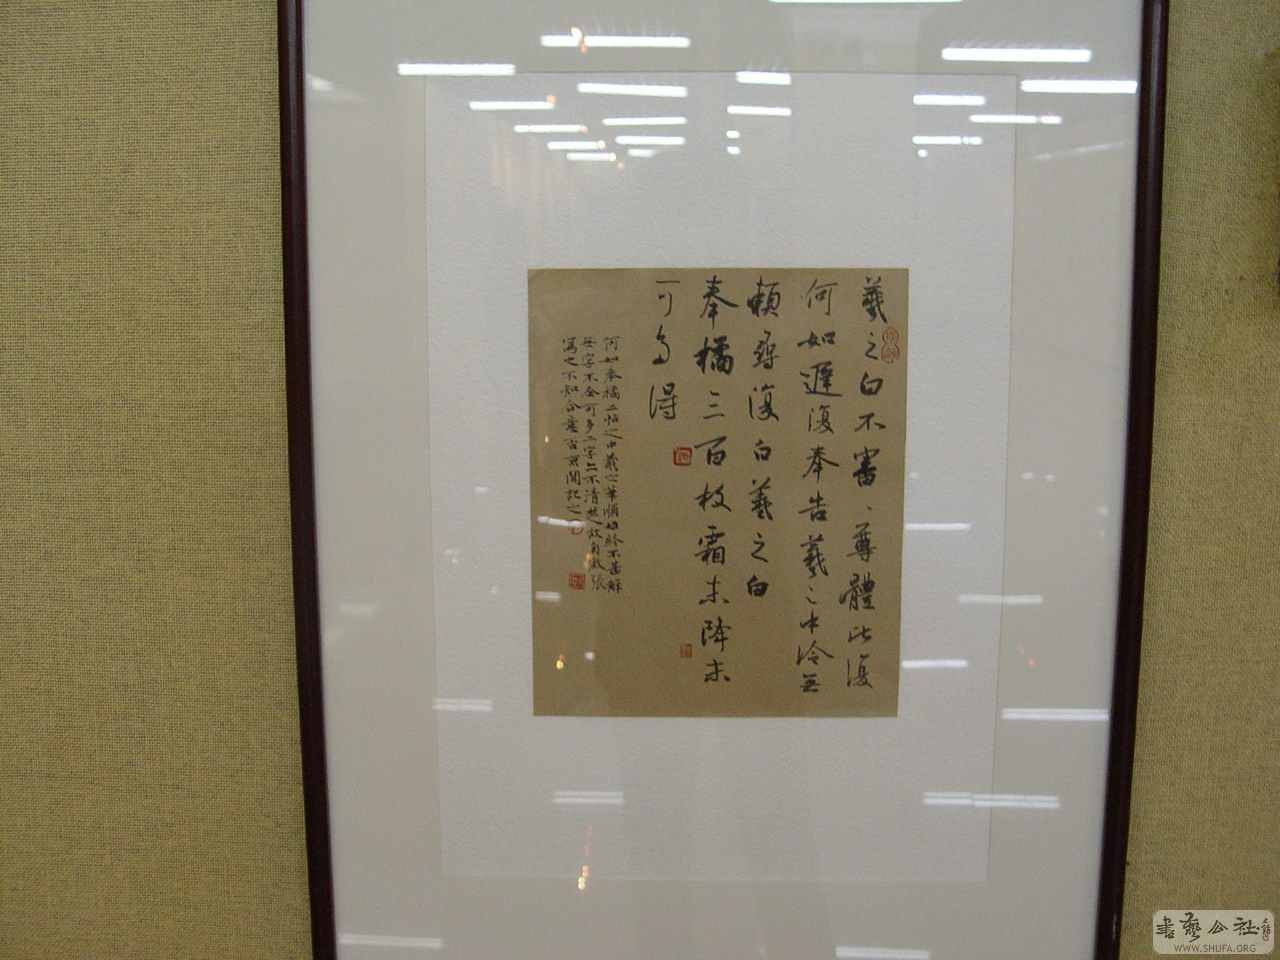 羲之白不審、尊體比復
何如遲復奉告羲之中冷無
賴尋復白羲之白
奉橘三百枚霜未降未
可多得
何如奉橘二帖之中羲之筆順始終不甚解
無字不全可多二字亦不清楚故自
寫之不知合意否 聞記之
書藝公社
WWW.SHUFA.ORG